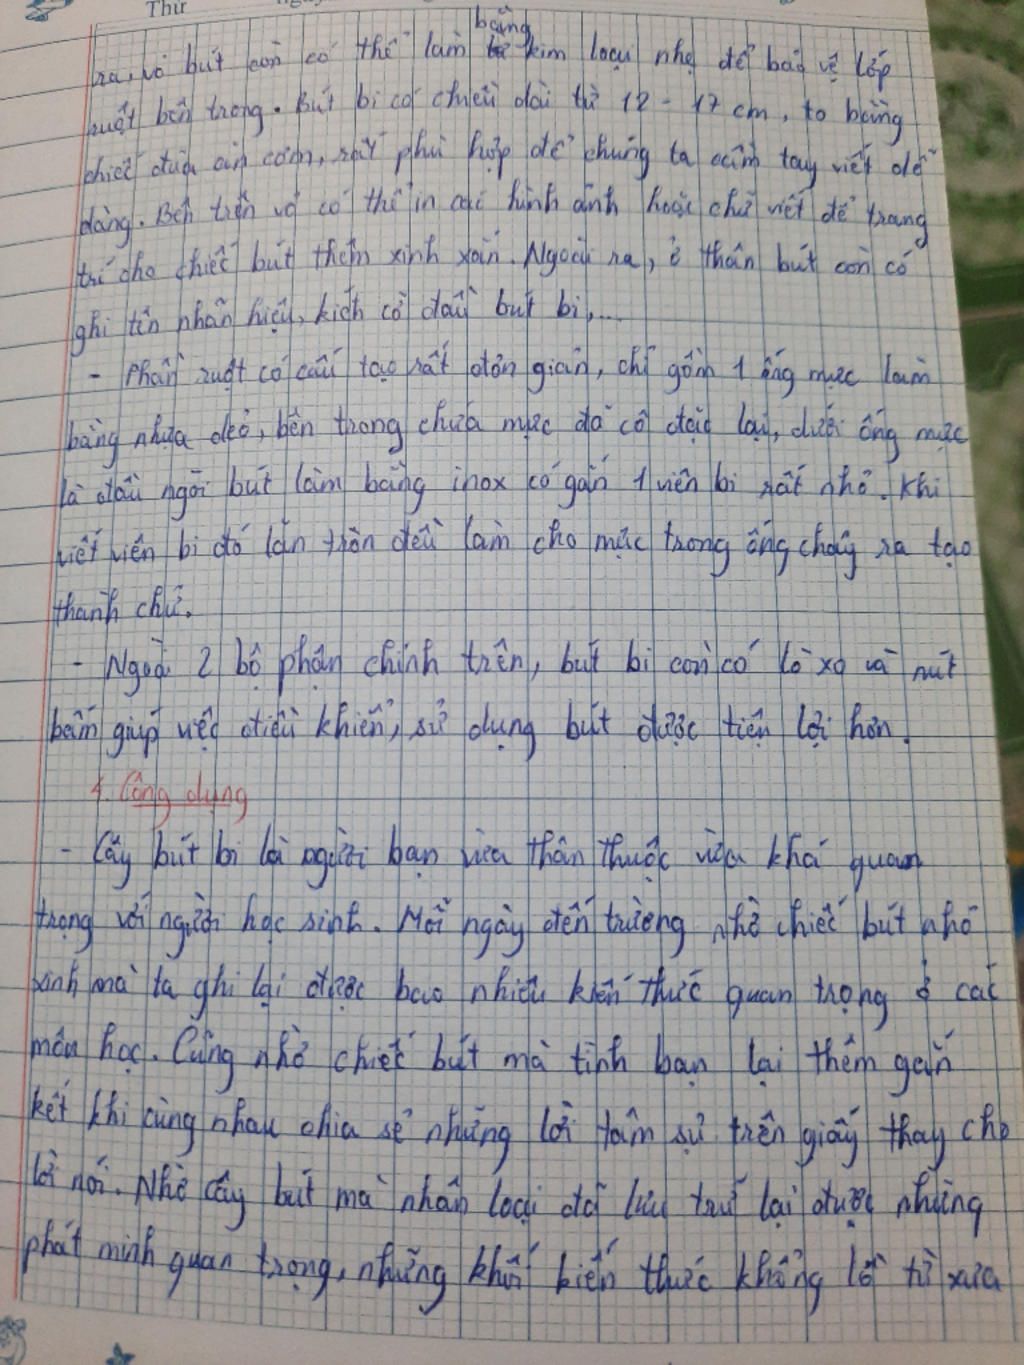 Thứ
bằng
ra, vỏ bút còn có thể làm kim loại nhẹ để bảo vệ lớp
ruột bên trong. Bút bi có chiều dài từ 12 - 17 cm, to bằng
chiếc đũa ăn cơm, rất phù hợp để chúng ta cầm tay viết dễ
dàng. Bên trên vỏ có thể in các hình ảnh hoặc chữ viết để trang
trí cho chiếc bút thêm xinh xắn. Ngoài ra, ở thân bút còn có
ghi tên nhãn hiệu, kích cỡ đầu bút bi,...
- Phần ruột có cấu tạo rất đơn giản, chỉ gồm 1 ống mực làm
bằng nhựa dẻo, bên trong chứa mực đã cô đặc lại, dưới ống mực
là đầu ngòi bút làm bằng inox có gắn 1 viên bi rất nhỏ. Khi
viết viên bi đó lăn tròn đều làm cho mực trong ống chảy ra tạo
thành chữ.
- Ngoài 2 bộ phận chính trên, bút bi còn có lò xo và nút
bấm giúp việc điều khiển, sử dụng bút được tiện lợi hơn.
4. Công dụng
- Cây bút bi là người bạn vừa thân thuộc vừa khá quan
trọng với người học sinh. Mỗi ngày đến trường nhờ chiếc bút nhỏ
xinh mà ta ghi lại được bao nhiêu kiến thức quan trọng ở các
môn học. Cũng nhờ chiếc bút mà tình bạn lại thêm gắn
kết khi cùng nhau chia sẻ những lời tâm sự trên giấy thay cho
lời nói. Nhờ cây bút mà nhân loại đã lưu trữ lại được những
phát minh quan trọng, những khối kiến thức khổng lồ từ xưa